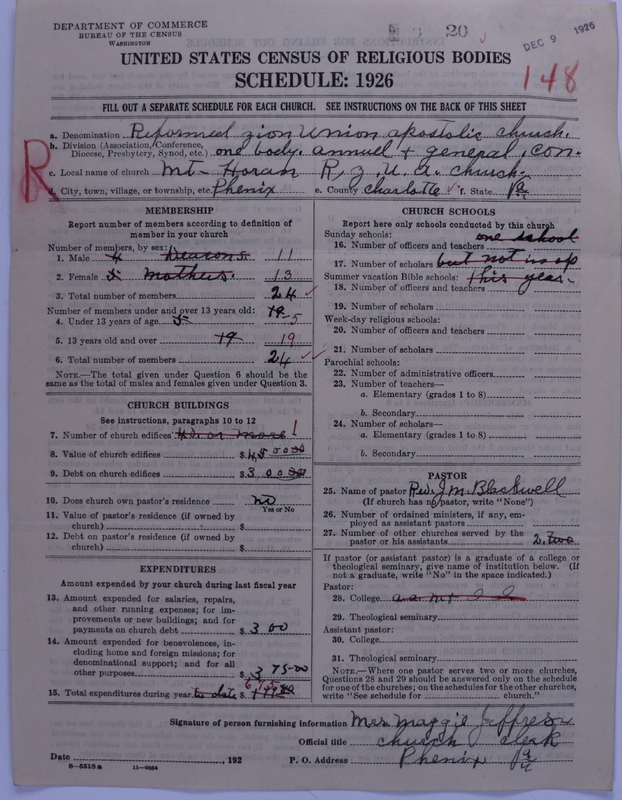 DEPARTMENT OF COMMERCE
BUREAU OF THE CENSUS
WASHINGTON
20
DEC 9 1926
148
UNITED STATES CENSUS OF RELIGIOUS BODIES
SCHEDULE: 1926
FILL OUT A SEPARATE SCHEDULE FOR EACH CHURCH. SEE INSTRUCTIONS ON THE BACK OF THIS SHEET
R
a. Denomination Reformed Zion Union apostolic church.
b. Division (Association, Conference, Diocese, Presbytery, Synod, etc.) one body. annuel + general, con.
c. Local name of church Mt- Horam R. Z. U. a. church-
d. City, town, village, or township, etc. Phenix e. County Charlotte f. State Va
MEMBERSHIP
Report number of members according to definition of
member in your church
Number of members, by sex:
1. Male 4 Deacons. 11
2. Female 5 mothers. 13
3. Total number of members 24
Number of members under and over 13 years old: 19
4. Under 13 years of age 5 5
5. 13 years old and over 19 19
6. Total number of members 24
NOTE.—The total given under Question 6 should be the
same as the total of males and females given under Question 3.
CHURCH BUILDINGS
See instructions, paragraphs 10 to 12
7. Number of church edifices 40. or more 1
8. Value of church edifices $
9. Debt on church edifices $
10. Does church own pastor's residence no
Yes or No
11. Value of pastor's residence (if owned by
church) $
12. Debt on pastor's residence (if owned by
church) $
EXPENDITURES
Amount expended by your church during last fiscal year
13. Amount expended for salaries, repairs,
and other running expenses; for im-
provements or new buildings; and for
payments on church debt $ 300
14. Amount expended for benevolences, in-
cluding home and foreign missions; for
denominational support; and for all
other purposes $ 375-00
15. Total expenditures during year to date $ 675
CHURCH SCHOOLS
Report here only schools conducted by this church
Sunday schools: one school
16. Number of officers and teachers
17. Number of scholars but not in op
Summer vacation Bible schools: this year-
18. Number of officers and teachers
19. Number of scholars
Week-day religious schools:
20. Number of officers and teachers
21. Number of scholars
Parochial schools:
22. Number of administrative officers
23. Number of teachers—
a. Elementary (grades 1 to 8)
b. Secondary
24. Number of scholars—
a. Elementary (grades 1 to 8)
b. Secondary
PASTOR
25. Name of pastor Rev. J. M. Blackwell
(If church has no pastor, write "None")
26. Number of ordained ministers, if any, em-
ployed as assistant pastors
27. Number of other churches served by the
pastor or his assistants 2. Two
If pastor (or assistant pastor) is a graduate of a college or
theological seminary, give name of institution below. (If
not a graduate, write "No" in the space indicated.)
Pastor:
28. College
29. Theological seminary
Assistant pastor:
30. College
31. Theological seminary
NOTE.—Where one pastor serves two or more churches,
Questions 28 and 29 should be answered only on the schedule
for one of the churches; on the schedules for the other churches,
write "See schedule for ............ church."
Signature of person furnishing information Mrs. Maggie Jeffress
Official title church clerk
Date ............, 192 P. O. Address Phenix Va
8—5518a 11—9064